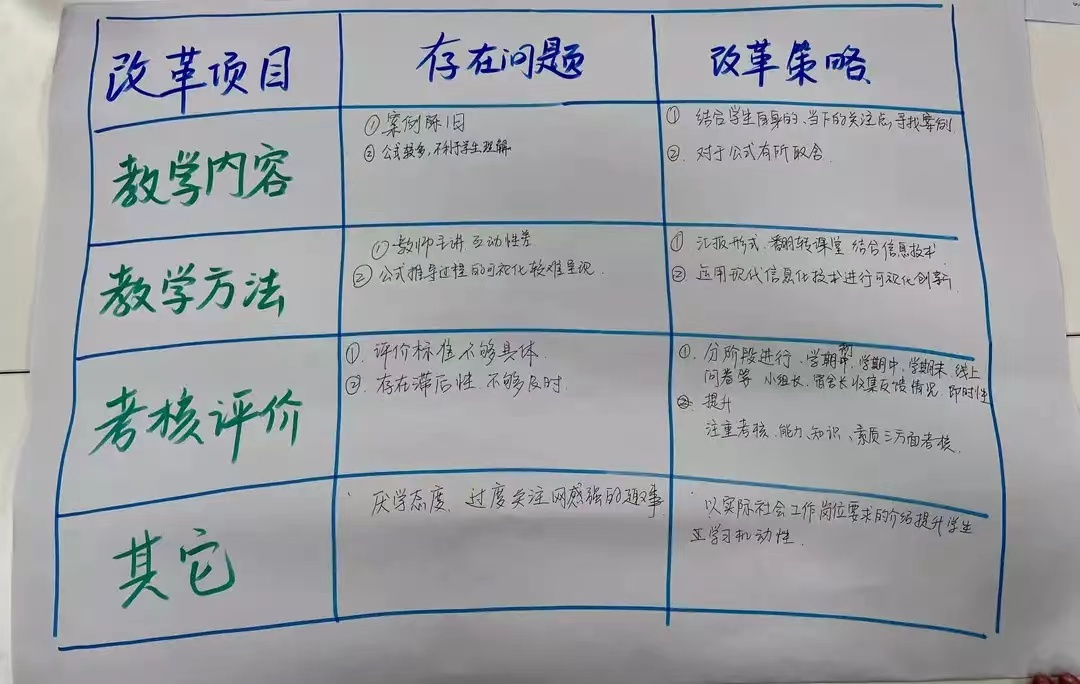 改革项目 存在问题 改革策略
教学内容
①案例陈旧
②公式较多,不利于学生理解
① 结合学生自身的、当下的关注点,寻找案例.
②. 对于公式有所取舍.
教学方法
①教师主讲 互动性差
② 公式推导过程的可视化较难呈现.
① 汇报形式、翻转课堂 结合信息技术.
② 运用现代信息化技术进行可视化创新.
考核评价
①. 评价标准不够具体.
②. 存在滞后性.不够及时.
①. 分阶段进行.学期初,学期中,学期末.线上
问卷等 小组长、 收集反馈情况.即时性
②. 提升
注重考核.能力、知识、素质三方面考核.
其它
厌学态度、过度关注网感强的趣事
以实际社会工作岗位要求的介绍提升学生
学习机动性.